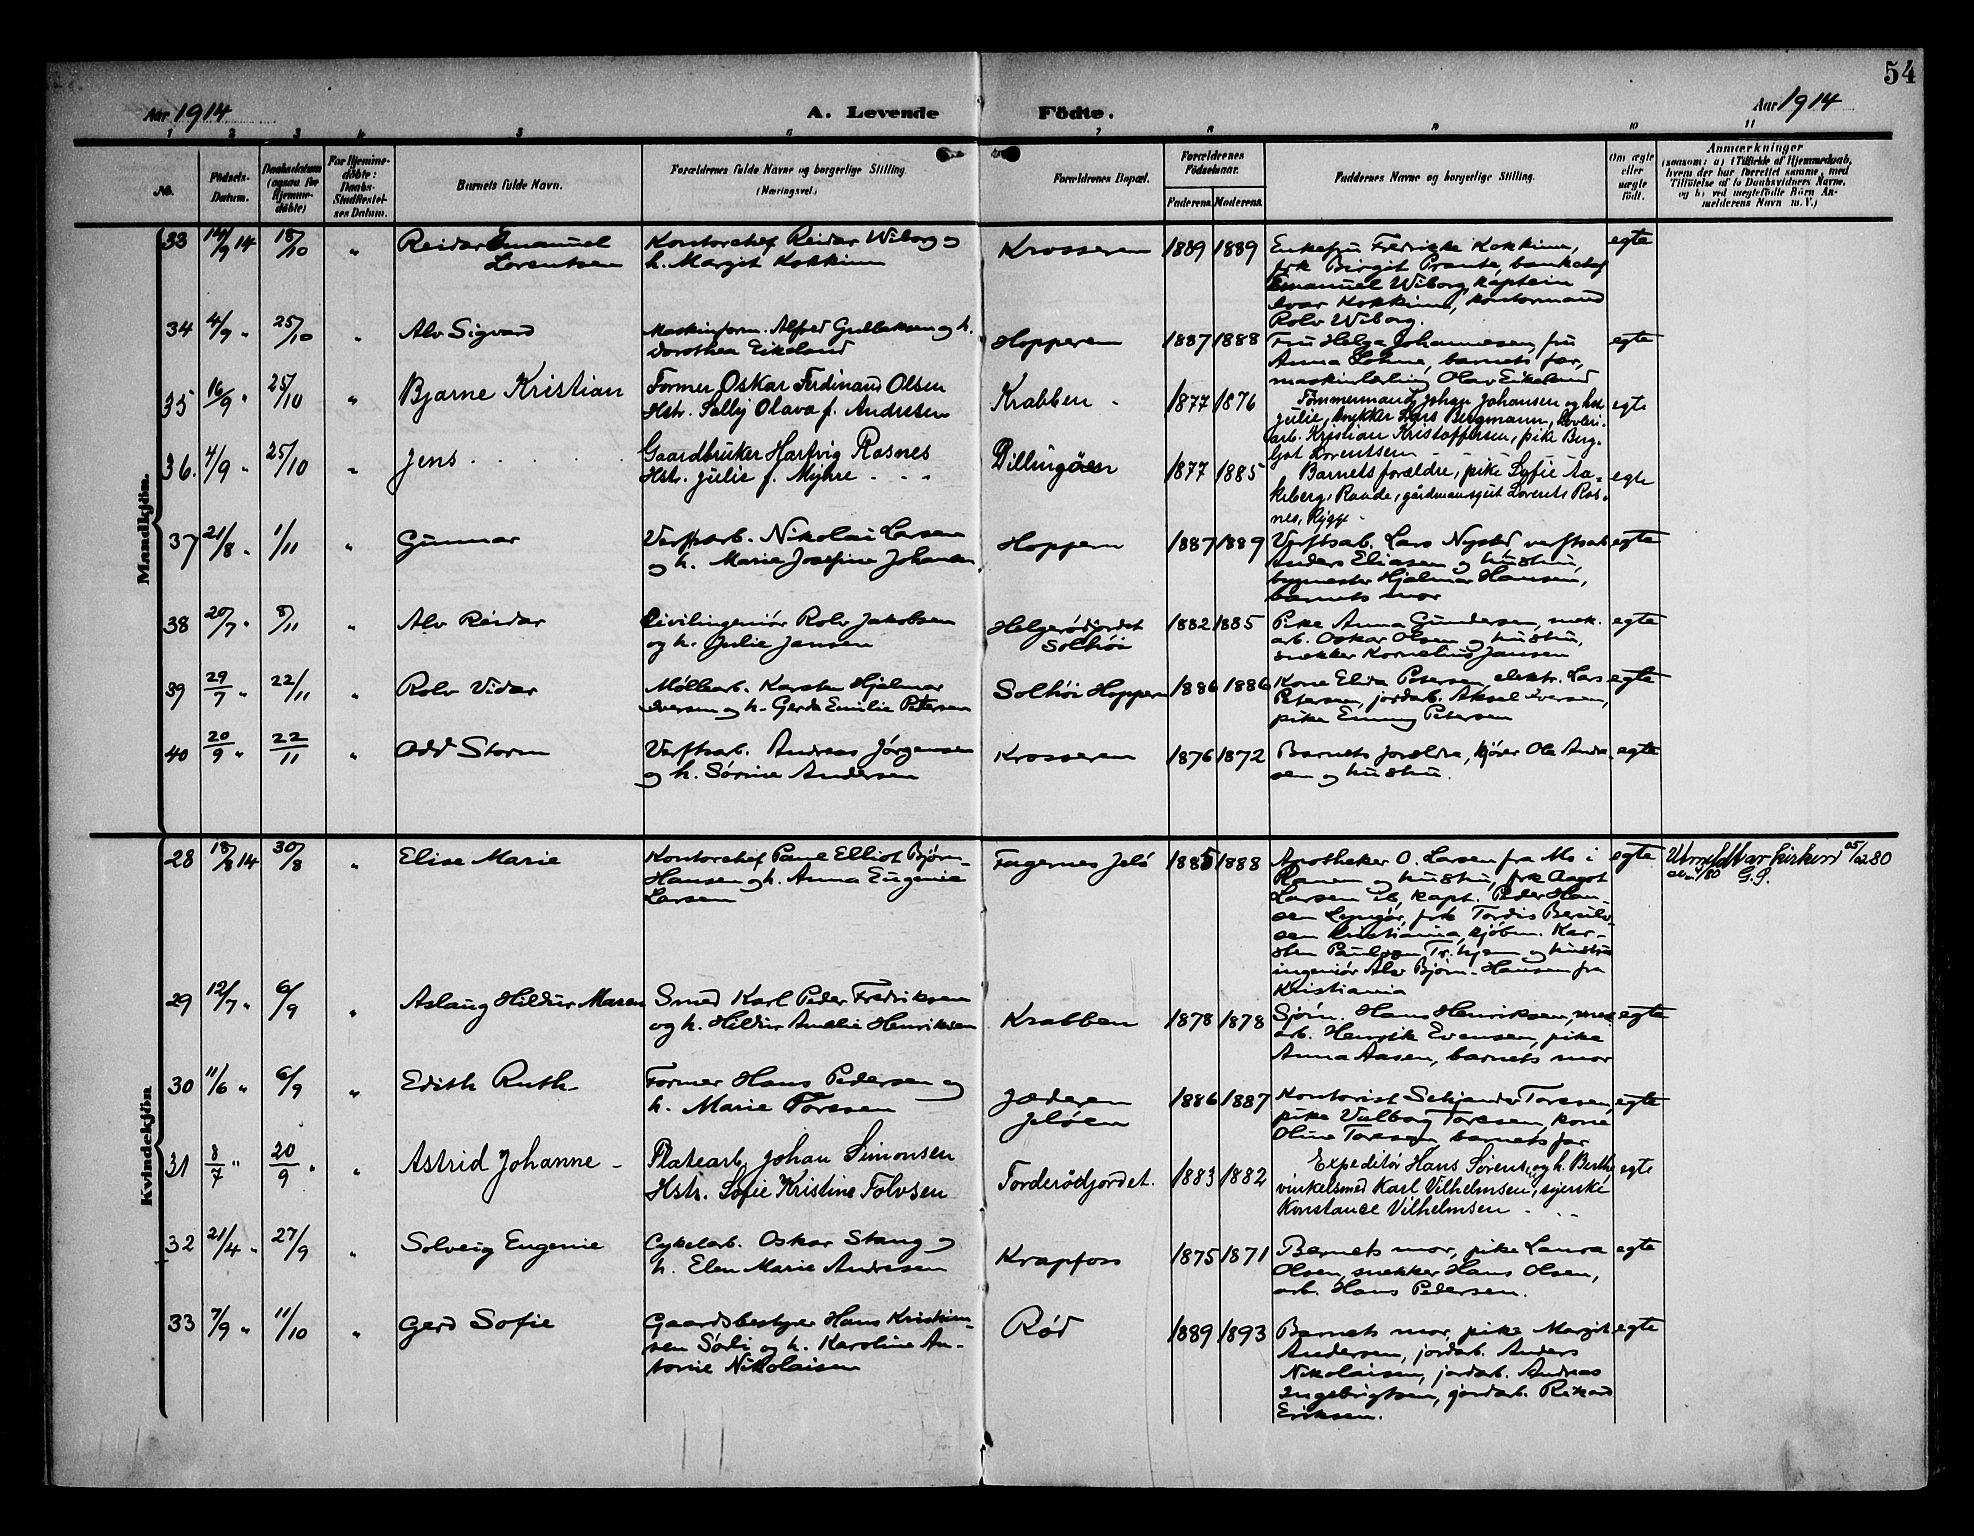 54
Aar 1914
A. Levende Födte.
Aar 1914
1 2 3 4 5 6 7 8 9 10 11
No.
Födsels-
Datum.
Daabsdatum
(ogsaa for
Hjemme-
døbte)
For Hjemme-
döbte:
Daabs-
Stadfæstel-
ses Datum.
Barnets fulde Navn.
Forældrenes fulde Navne og borgerlige Stilling.
(Næringsvei.)
Forældrenes Bopæl.
Forældrenes
Födselsaar.
Faderens. Moderens.
Faddernes Navne og borgerlige Stilling.
Om ægte
eller
uægte
födt.
Anmærkninger
(saasom: a) i Tilfælde af Hjemmedaab,
hvem der har forrettet samme, med
Tilföielse af to Daabsvidners Navne,
og b) ved uægtefödte Börn An-
melderens Navn m. V.)
Mandkjön.
33 14/9 14 18/10 " Reidar Emanuel
Lorentsen
Kontorchef Reidar Wiborg og
h. Margit Kokkinn
Krosseren 1889 1889
Enkefru Fredrikke Kokkinn,
frk Birgit Prante, bankchef
Emanuel Wiborg, kaptein
Ivar Kokkinn, kontormand
Rolv Wiborg.
egte
34 4/9 " 25/10 " Alv Sigvard
Maskinform. Alfred Gullaksen og h.
Dorothea Eikeland
Hopperen 1887 1888
Fru Helga Johannesen, fru
Anna Lohne, barnets far,
maskinlærling Olav Eikeland
egte
35 16/9 " 25/10 " Bjarne Kristian
Former Oskar Ferdinand Olsen
Hstr. Selly Olava f. Andresen
Krabben - 1877 1876
Tømmermand Johan Johansen og hstr
Julie, snykker Lars Bergmann,
arb. Kristian Kristoffersen, pike Berg-
ljot Lorentsen
egte
36. 4/9 " 25/10 " Jens
Gaardbruker Hartvig Rosnes
Hstr. Julie f. Myhre
Dillingöen 1877 1885
Barnets forældre, pike Sofie Aa-
keberg, Raade, gårdmansgut Lorents Ros-
nes, Rygge
egte
37 21/8 " 1/11 " Gunnar
Verftsarb. Nikolai Larsen
og h. Marie Josefine Johansen
Hoppern 1887 1889
Verftsarb. Lars Nysted verftsarb
Anders Eliasen og hustru,
bygmester Hjalmar Hansen,
barnets mor
egte
38 20/7 " 8/11 " Alv Reidar
Civilingeniör Rolv Jakobsen
og h. Julie Jansen
Helgerødjordet
Solhöi
1882 1885
Pike Anna Gundersen, mek.
arb. Oskar Olsen og hustru,
snekker Kornelius Jansen
egte
39 29/7 " 22/11 " Rolv Vidar
Møllearb. Karsten Hjalmar
Iversen og h. Gerda Emilie Petersen
Solhöi Hoppern 1886 1886
Kone Elida Petersen, elektr. Lars
Petersen, jordarb. Aksel Iversen,
pike Emmy Petersen
egte
40 20/9 " 22/11 " Odd Storm
Verftsarb. Andreas Jörgensen
og h. Sörine Andersen
Krosseren 1876 1872
Barnets forældre, kjører Ole Andre
sen og hustru.
egte
Kvindekjön
28 18/8 14 30/8 " Elise Marie
Kontorchef Paul Elliot Björn-
Hansen og h. Anna Eugenie
Larsen
Fagernes Jelö 1885 1888
Apotheker O. Larsen fra Mo i
Ranen og hustru, frk Aagot
Larsen ib, kapt. Peder Han-
sen Lyngör, frk Tordis
Kristiania, kjøbm. Kar-
sten Paulsen Tr.hjem og hustru
ingeniör Alv Björn-Hansen fra
Kristiania
egte
Utmeldt av kirken 80
G.P.
29 12/7 " 6/9 " Aslaug Hildur Maren
Smed Karl Peder Fredriksen
og h. Hildur Amalie Henriksen
Krabben 1878 1878
Sjöm. Hans Henriksen,
arb. Henrik Evensen, pike
Anna Aasen, barnets mor
egte
30 11/6 " 6/9 " Edith Ruth
Former Hans Pedersen og
h. Marie Toresen
Jæderen
Jelöen
1886 1887
Kontorist Toresen,
pike Valborg Toresen, kone
Oline Toresen, barnets far
egte
31 8/7 " 20/9 " " Astrid Johanne
Platearb. Johan Simonsen
Hstr. Sofie Kristine Tolvsen
Torderödjordet. 1883 1882
Expeditör Hans Sörens. og h. Berth
vinkelsmed Karl Vilhelmsen, syerske
Konstance Vilhelmsen
egte
32 21/4 " 27/9 " Solveig Eugenie
Cykelarb. Oskar Stang og
h. Elen Marie Andresen
Krapfoss 1875 1871
Barnets mor, pike Laura
Olsen, snekker Hans Olsen,
arb. Hans Pedersen.
egte
33 7/9 " 11/10 " Gerd Sofie
Gaardsbestyrer Hans Kristian-
sen Sörli og h. Karoline An-
tonie Nikolaisen
Rød 1889 1893
Barnets mor, pike Margit
Andersen, jordarb. Anders
Nikolaisen, jordarb. Andreas
Ingebrigtsen, jordarb. Rikard
Eriksen.
egte